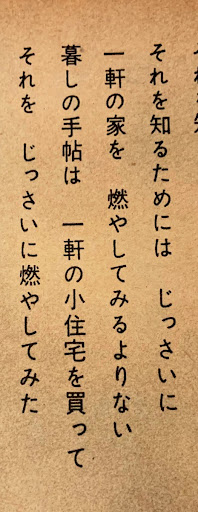 それを知るためには　じっさいに
一軒の家を　燃やしてみるよりない
暮しの手帖は　一軒の小住宅を買って
それを　じっさいに燃やしてみた